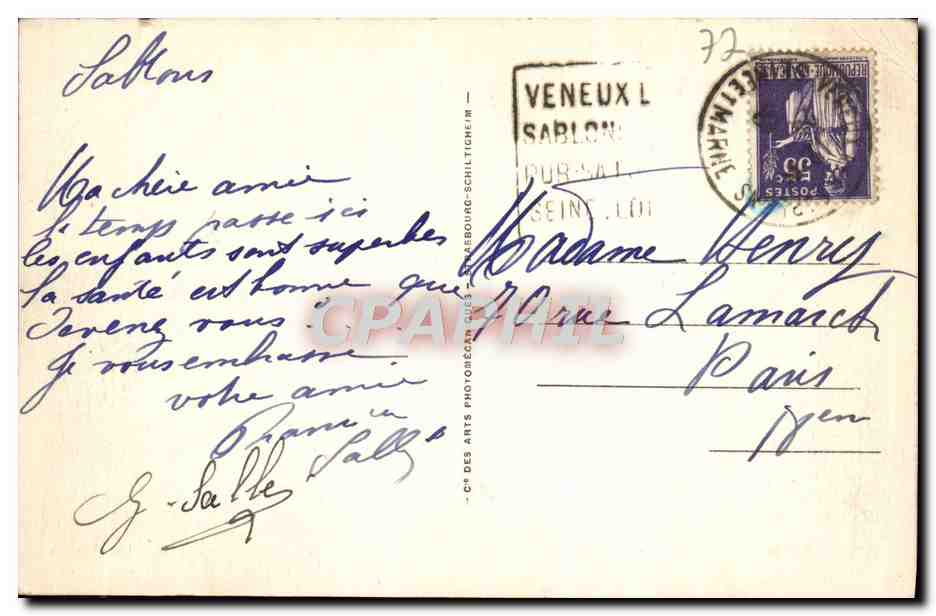 Sablons
Ma chère amie
le temps passe ici
les enfants sont superbes
la santé est bonne que
devenez vous ?
Je vous embrasse
votre amie
Salles
G. Salles
Cie DES ARTS PHOTOMÉCANIQUES - STRASBOURG-SCHILTIGHEIM
72
VENEUX L
SABLON
SEINE LOI
SEINE ET MARNE
REPUBLIQUE FRANCAISE
55
POSTES
Madame Henry
70 rue Lamarck
Paris
CPAPHIL